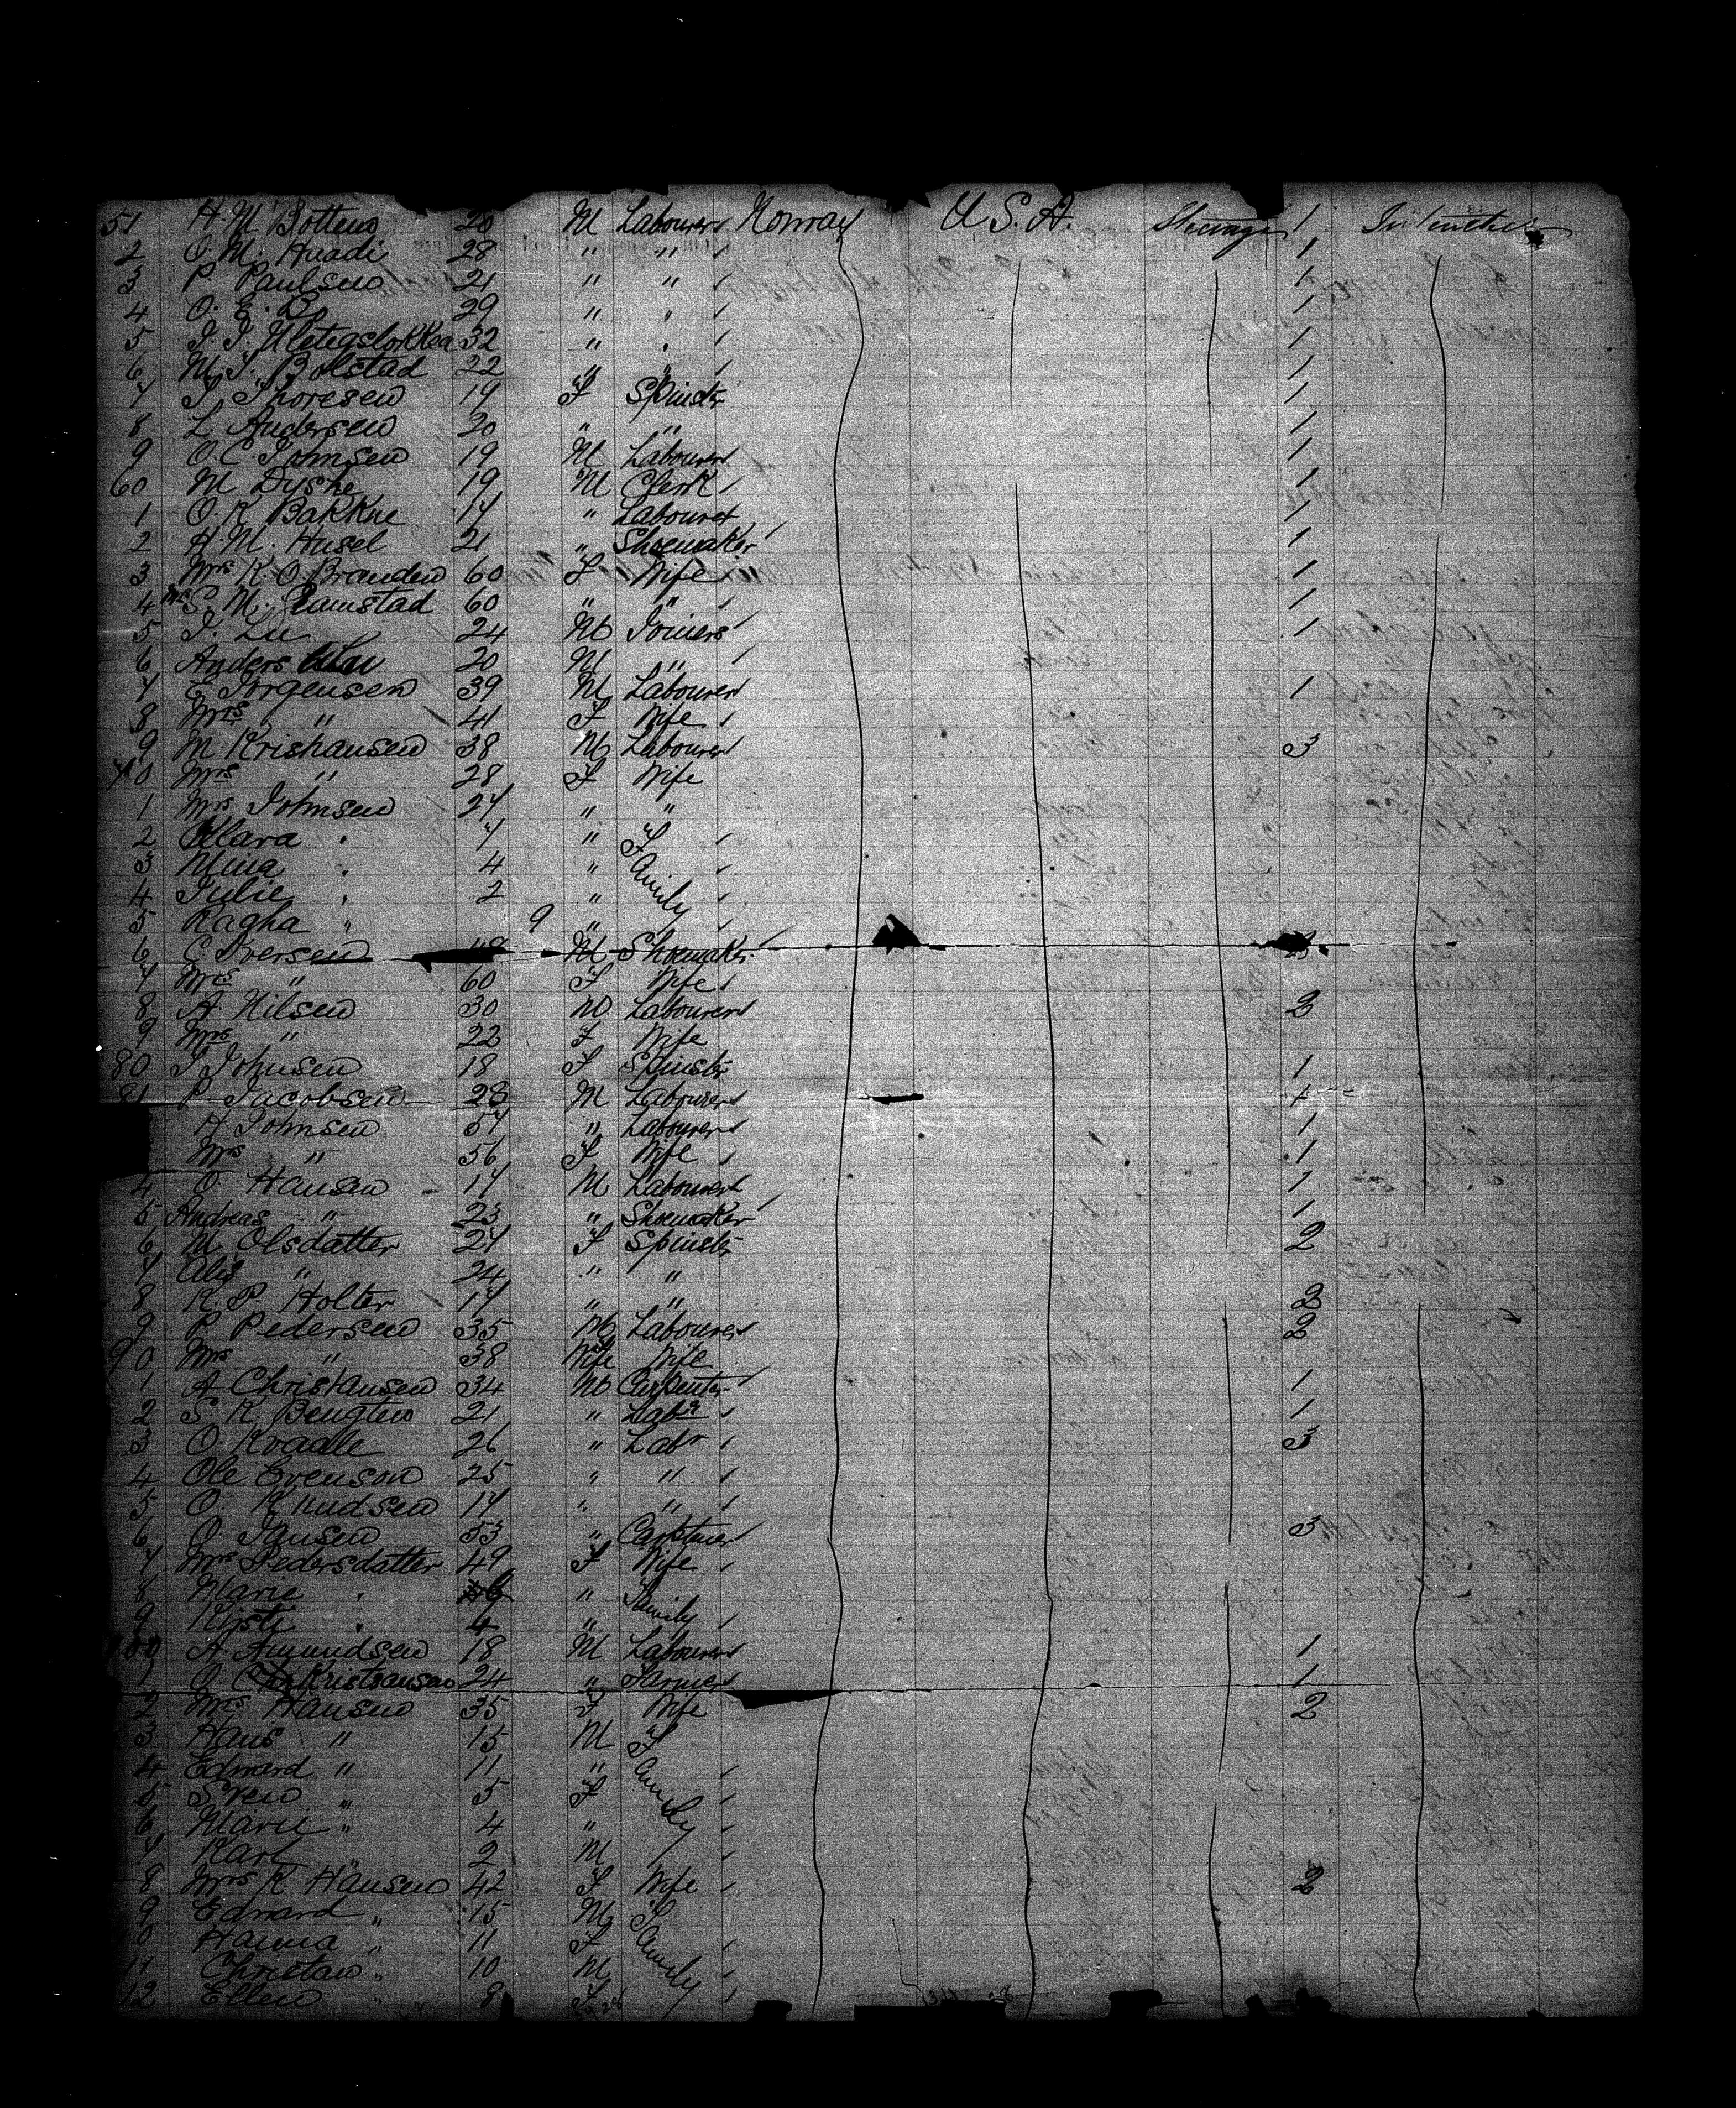 51 H. M. Bottens 20 M Labourer Norway U. S. A. Steerage 1
2 O. M. Huadi 28 " " 1
3 P. Paulsen 21 " " 1
4 O. E. Bo 29 " " 1
5 32 " " 1
6 M. T. Bolstad 22 " " 1
7 T Thoresen 19 F Spinstr
8 L Andersen 20 " " 1
9 O. C. Johnsen 19 M Labourer 1
60 M Dyshe 19 M Clerk 1
1 O. K. Bakkne 17 " Labourer 1
2 H. M. Husel 21 " Shoemaker 1
3 Mrs K. O. Branden 60 F Wife 1
4 Mrs S. M. Ramstad 60 " " 1
5 J. Lu 24 M Joiners 1
6 Anders 20 M "
7 E Jorgensen 39 M Labourer 1
8 Mrs " 41 F Wife
9 M Krishansen 38 M Labourer 3
70 Mrs " 28 F Wife
1 Mrs Johnsen 27 " "
2 Klara " 7 " F
3 Mina " 4 " amily
4 Julie " 2 "
5 Ragha " 9 "
6 C Iversen M Shoemaker
7 Mrs " 60 F Wife
8 A Nilsen 30 M Labourer 2
9 Mrs " 22 F Wife
80 J Johnsen 18 F Spinstr 1
81 P Jacobsen 28 M Labourer 1
H Johnsen 57 " Labourer 1
Mrs " 56 F Wife 1
4 O Hansen 17 M Labourer 1
5 Andreas " 23 " Shoemaker 1
6 M Olsdatter 27 F Spinstr 2
7 Alis " 24 " "
8 K. P Holter 17 " " 2
9 P Pedersen 35 M Labourer 2
90 Mrs " 38 Wife Wife
1 A Christansen 34 M Carpenter 1
2 S K. Bengten 21 " Labr 1
3 O Kvaale 26 " Labr 3
4 Ole Evenson 25 " "
5 O. Knudsen 17 " "
6 O Jansen 53 " Carptner 3
7 Mrs Pedersdatter 49 F Wife
8 Marie " "  Family
9 Kirsti " 4 "
100 A Amundsen 18 M Labourer 1
1 O Kristiansen 24 " Farmer 1
2 Mrs Hansen 35 F Wife 2
3 Hans " 15 M F
4 Edward " 11 " amily
5 Sven " 5 F
6 Marie " 4 "
7 Karl " 2 M
8 Mrs K Hansen 42 F Wife 2
9 Edward " 15 M F
0 Hanna " 11 F amily
11 Christan " 10 M
12 Ellen " 8 F